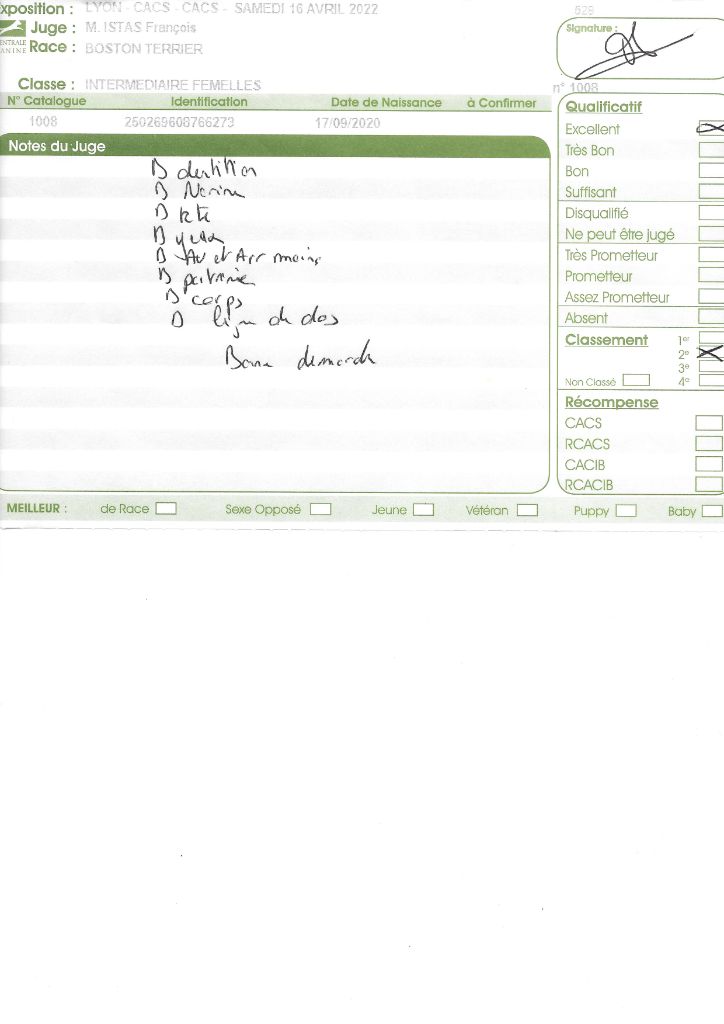 xposition : LYON - CACS - CACS - SAMEDI 16 AVRIL 2022
529
Juge : M. ISTAS François
Signature :
ENTRALE
ANINE
Race : BOSTON TERRIER
Classe : INTERMEDIAIRE FEMELLES
n° 1008
N° Catalogue Identification Date de Naissance à Confirmer
1008 250269608766273 17/09/2020
Notes du Juge
B dentition
B
B tete
B yeux
B Av et Arr mains
B poitrine
B corps
B ligne de dos
Bonne demarche
Qualificatif
Excellent
Très Bon
Bon
Suffisant
Disqualifié
Ne peut être jugé
Très Prometteur
Prometteur
Assez Prometteur
Absent
Classement 1er
2e
3e
Non Classé 4e
Récompense
CACS
RCACS
CACIB
RCACIB
MEILLEUR : de Race Sexe Opposé Jeune Vétéran Puppy Baby